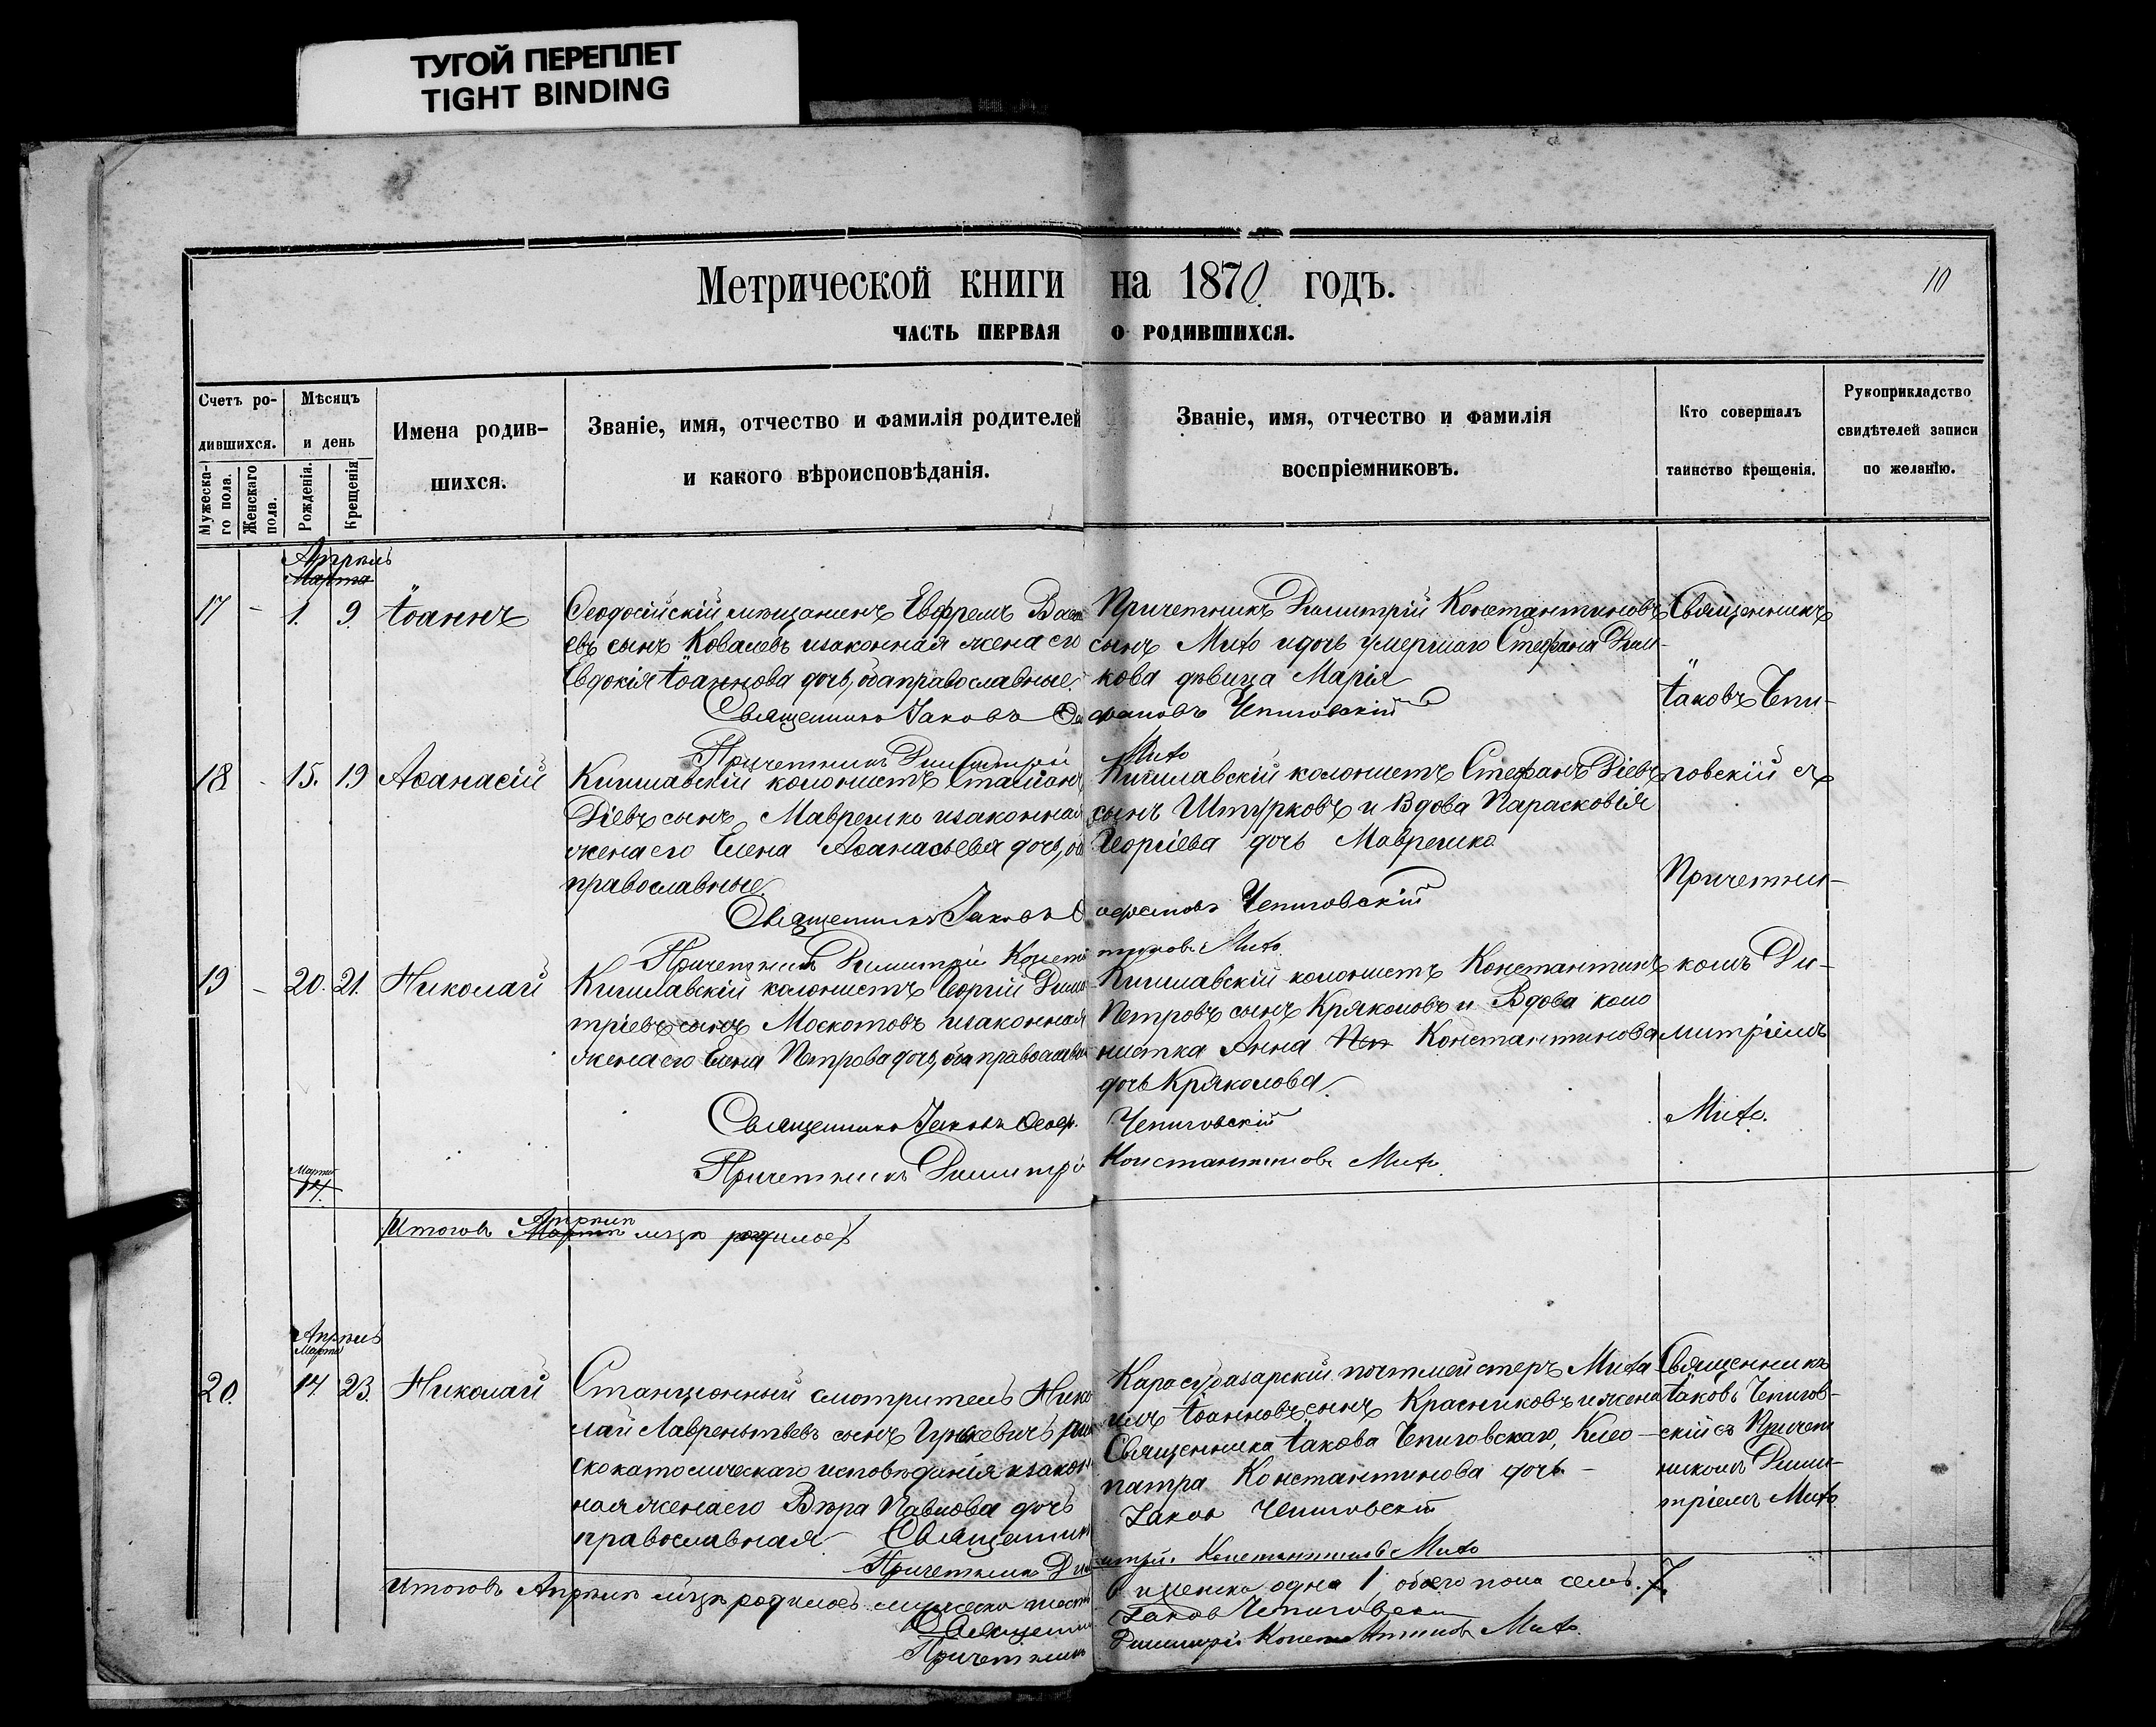 ТУГОЙ ПЕРЕПЛЕТ
TIGHT BINDING
Метрической книги на 1870 годъ.
10
ЧАСТЬ ПЕРВАЯ О РОДИВШИХСЯ.
Счетъ ро-
дившихся.
Мужеска-
го пола.
Женскаго
пола.
Мѣсяцъ
и день
Рожденія.
Крещенія
Имена родив-
шихся.
Званіе, имя, отчество и фамилія родителей
и какого вѣроисповѣданія.
Званіе, имя, отчество и фамилія
воспріемниковъ.
Кто совершалъ
таинство крещенія.
Рукоприкладство
свидѣтелей записи
по желанію.
Апрѣль
Марта
17 - 1. 9. Іоаннъ
Ѳеодосійскій мѣщанинъ Евфремъ
евъ сынъ Ковалевъ изаконная жена его
Евдокія Іоаннова дочь, оба православные.
Священникъ Іаковъ
Причетникъ Димитрій
Причетникъ Димитрій Константиновъ
сынъ Мито идочь умершаго Стефана
кова дѣвица Марія
Чепиговскій
Мито
Священникъ
Іаковъ Чепи-
18 - 15. 19 Аѳанасій
Кишлавскій колонистъ
Діевъ сынъ Маврешко изаконная
жена его Елена Аѳанасьева дочь,
православные
Священникъ Іаковъ
Причетникъ Димитрій Конста
Кишлавскій колонистъ Стефанъ Діевъ
сынъ Штурковъ и Вдова Парасковія
Георгіева дочь Маврешко
Чепиговскій
Мито
говскій съ
Причетни-
19 - 20. 21. Николай
Кишлавскій колонистъ Георгій Дими
тріевъ сынъ Москотовъ изаконная
жена его Елена Петрова дочь, оба православн
Священникъ Іаковъ Ѳеоф.
Причетникъ Димитрі
Кишлавскій колонистъ Константинъ
Петровъ сынъ Кряколовъ и Вдова коло
нистка Анна Пет Константинова
дочь Кряколова
Чепиговскій
Константиновъ Мито
комъ Ди-
митріемъ
Мито.
Марта
14.
Итогов Апрѣлѣ Мартѣ мцѣ родилось
Апрѣль
Марта
20. 14 23. Николай
Станціонный смотритель Нико
лай Лаврентьевъ сынъ рим
скокатолическаго исповѣданія изакон
ная жена его Вѣра Павлова дочь
православная Священник
Причетникъ Дим
Карасубазарскій почтмейстеръ Миха
илъ Іоанновъ сынъ Красниковъ и жена
Священника Іакова Чепиговскаго, Клео-
патра Константинова дочь -
Іаковъ Чепиговскій
итрій Константиновъ Мито
Священникъ
Іаковъ Чепигов-
скій съ Причет
никомъ Дими-
тріемъ Мито
Итоговъ Апрѣлѣ мцѣ родилось мужеска шесть
6 и женска одна 1, обоего пола семь. 7.
Священник Іаковъ Чепиговскій
Причетникъ Димитрій Константиновъ Мито.